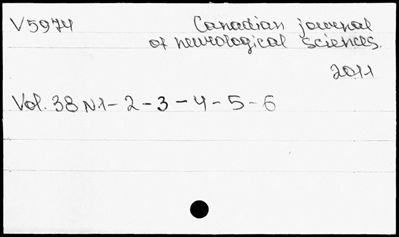 V5974 Canadian journal
of neurological sciences.
2011
Vol. 38 N1-2-3-4-5-6